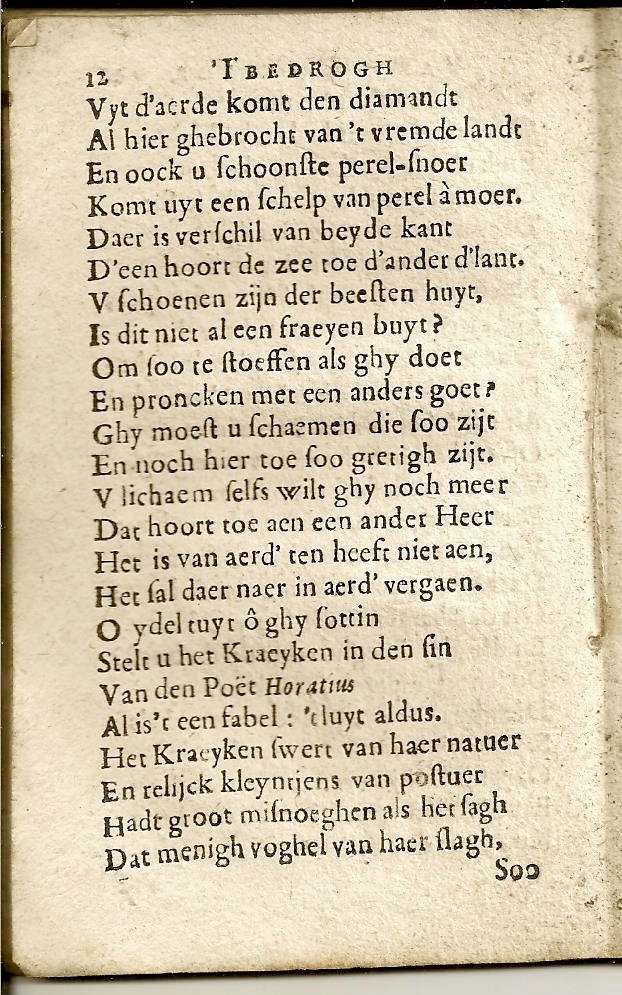 12 'T BEDROGH
Vyt d'aerde komt den diamandt
Al hier ghebrocht van 't vremde landt
En oock u ſchoonſte perel-ſnoer
Komt uyt een ſchelp van perel à moer.
Daer is verſchil van beyde kant
D'een hoort de zee toe d'ander d'lant.
V ſchoenen zijn der beeſten huyt,
Is dit niet al een fraeyen buyt?
Om ſoo te ſtoeffen als ghy doet
En proncken met een anders goet?
Ghy moeſt u ſchaemen die ſoo zijt
En noch hier toe ſoo gretigh zijt.
V lichaem ſelfs wilt ghy noch meer
Dat hoort toe aen een ander Heer
Het is van aerd' ten heeft niet aen,
Het ſal daer naer in aerd' vergaen.
O ydel tuyt ô ghy ſottin
Stelt u het Kraeyken in den ſin
Van den Poët Horatius
Al is't een fabel : 'tluyt aldus.
Het Kraeyken ſwert van haer natuer
En relijck kleyntjens van poſtuer
Hadt groot miſnoeghen als het ſagh
Dat menigh voghel van haer ſlagh,
Soo